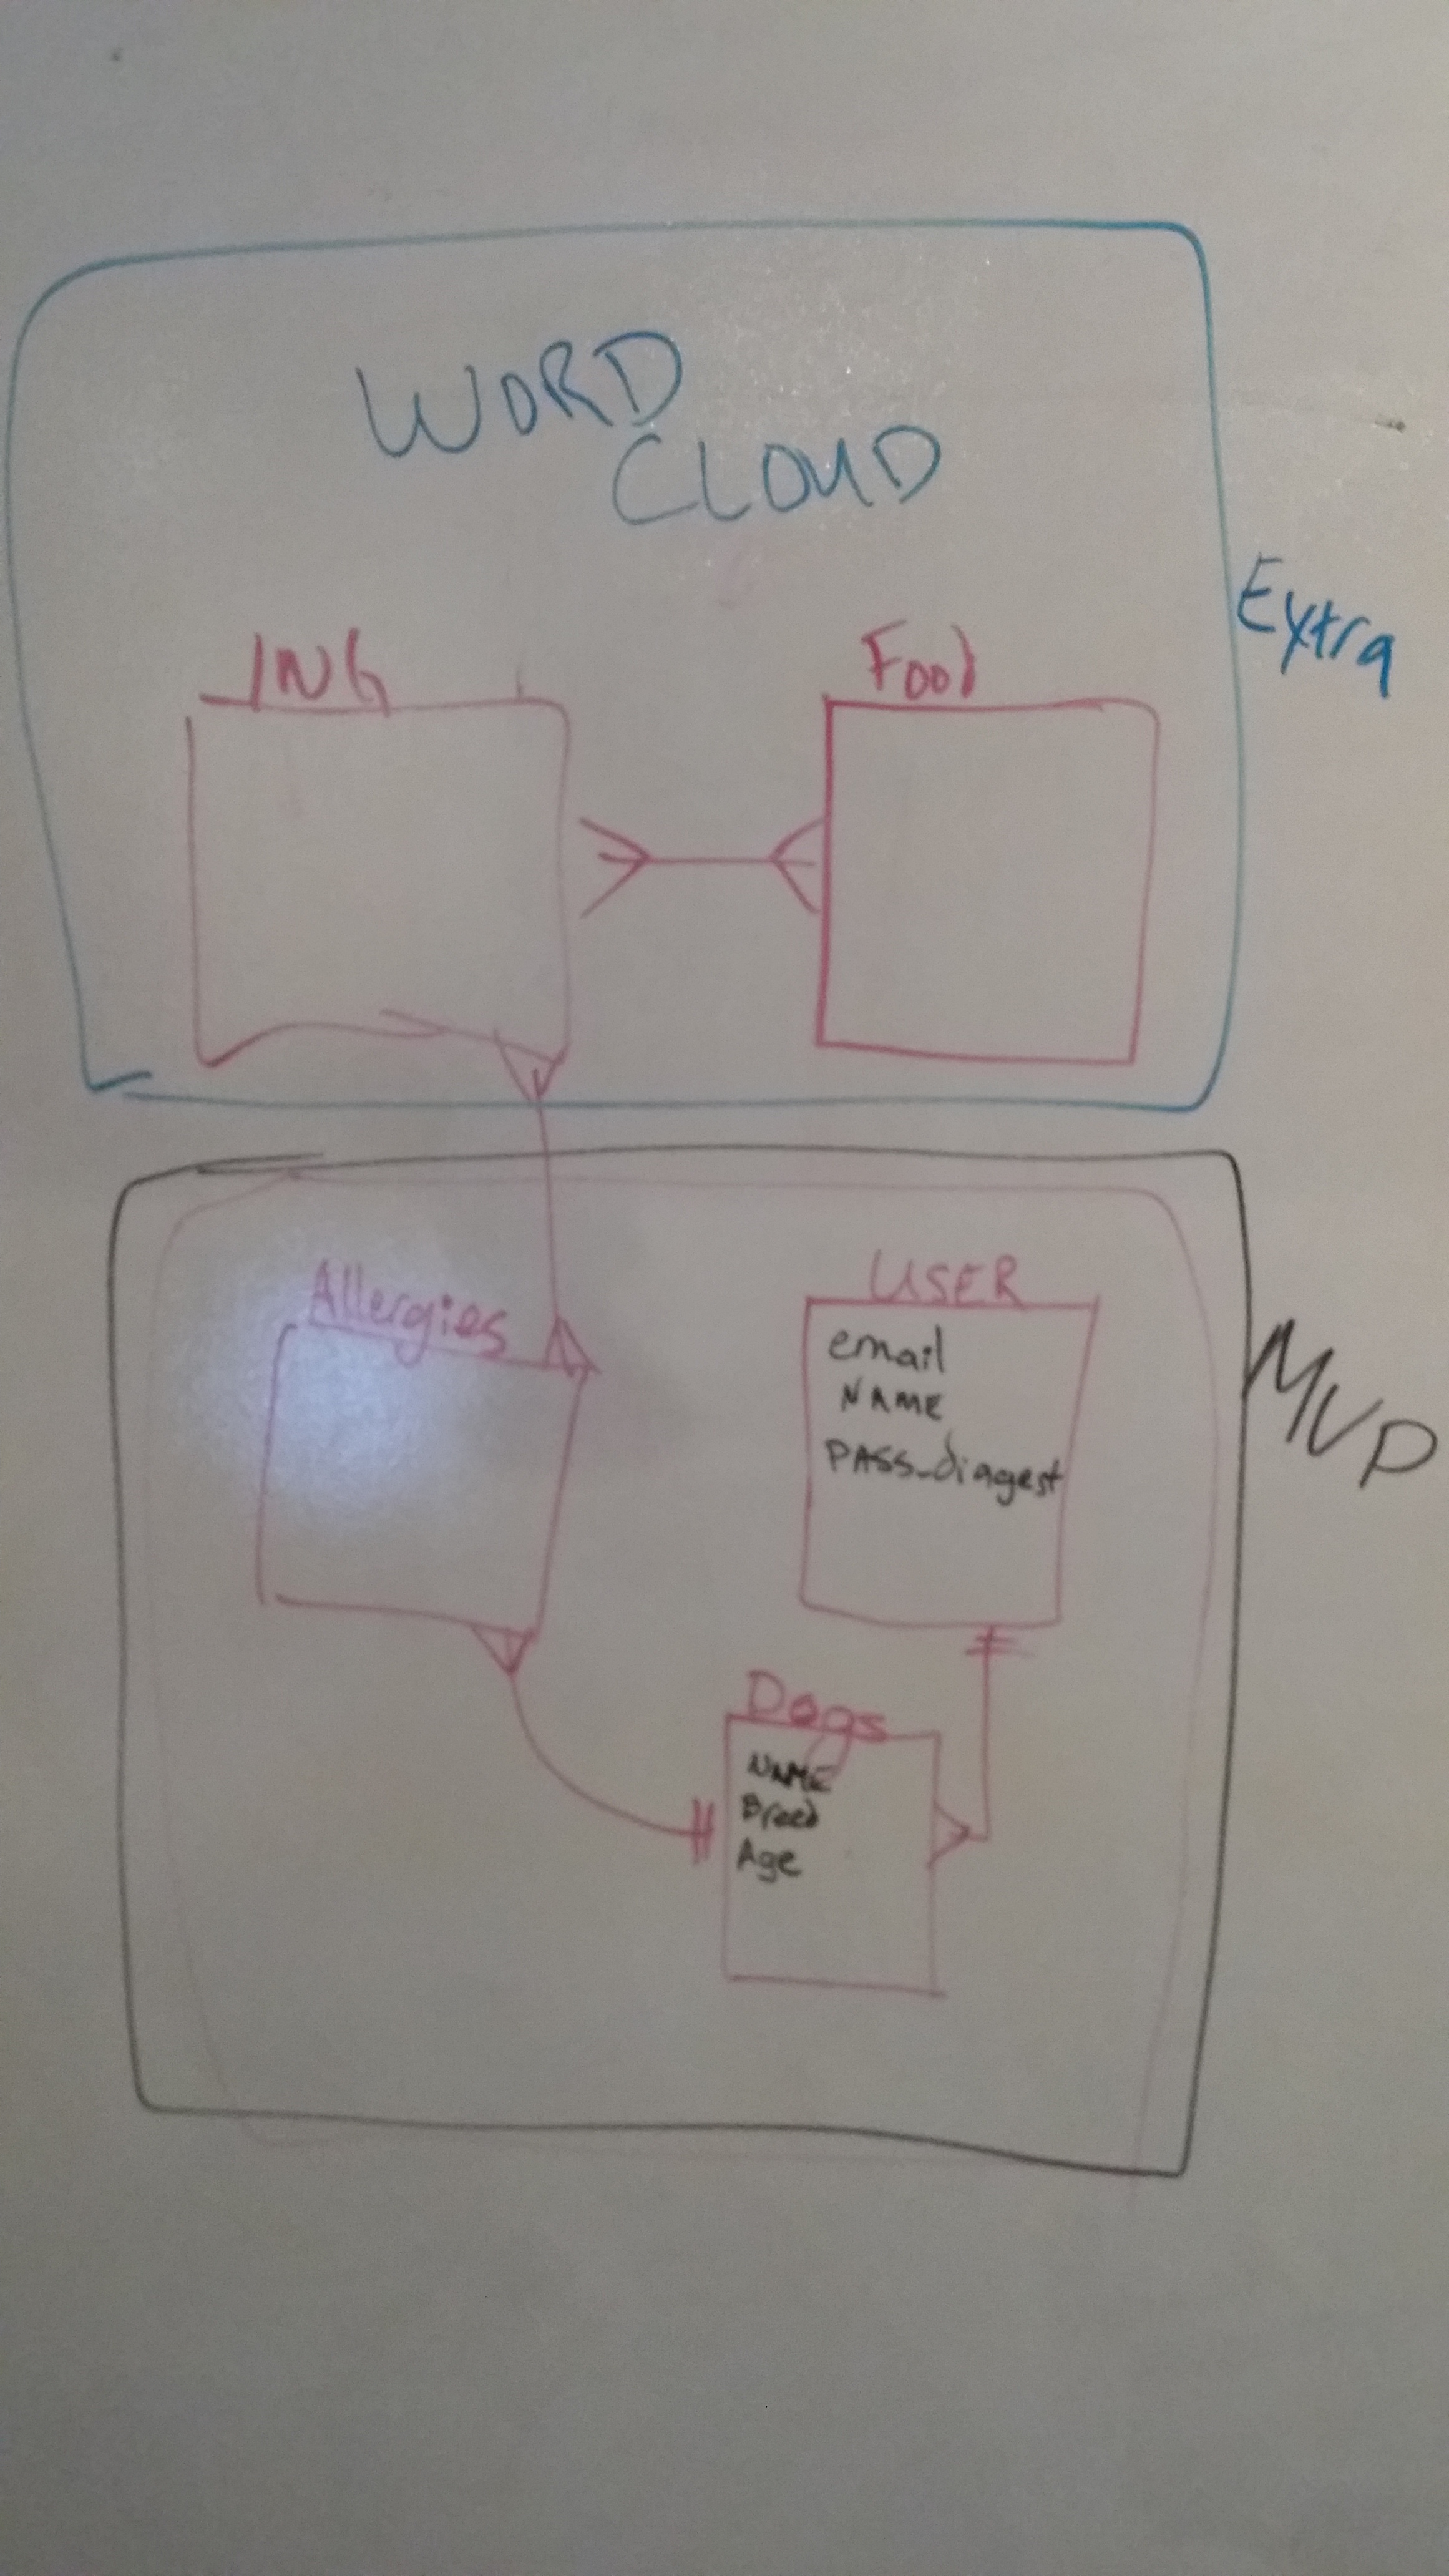 WORD
CLOUD
Extra
ING
Food
MVP
Allergies
USER
email
NAME
PASS_diagest
Dogs
NAME
Breed
Age